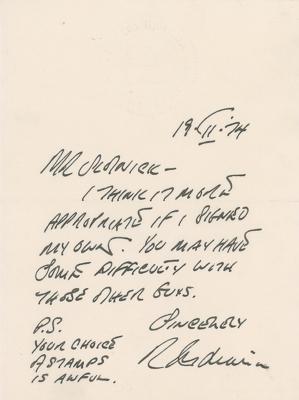 19-II-74
MR RESNICK -
I THINK IT MORE
APPROPRIATE IF I SIGNED
MY OWN. YOU MAY HAVE
SOME DIFFICULTY WITH
THOSE OTHER GUYS.
P.S. SINCERELY
YOUR CHOICE
A STAMPS
IS AWFUL.